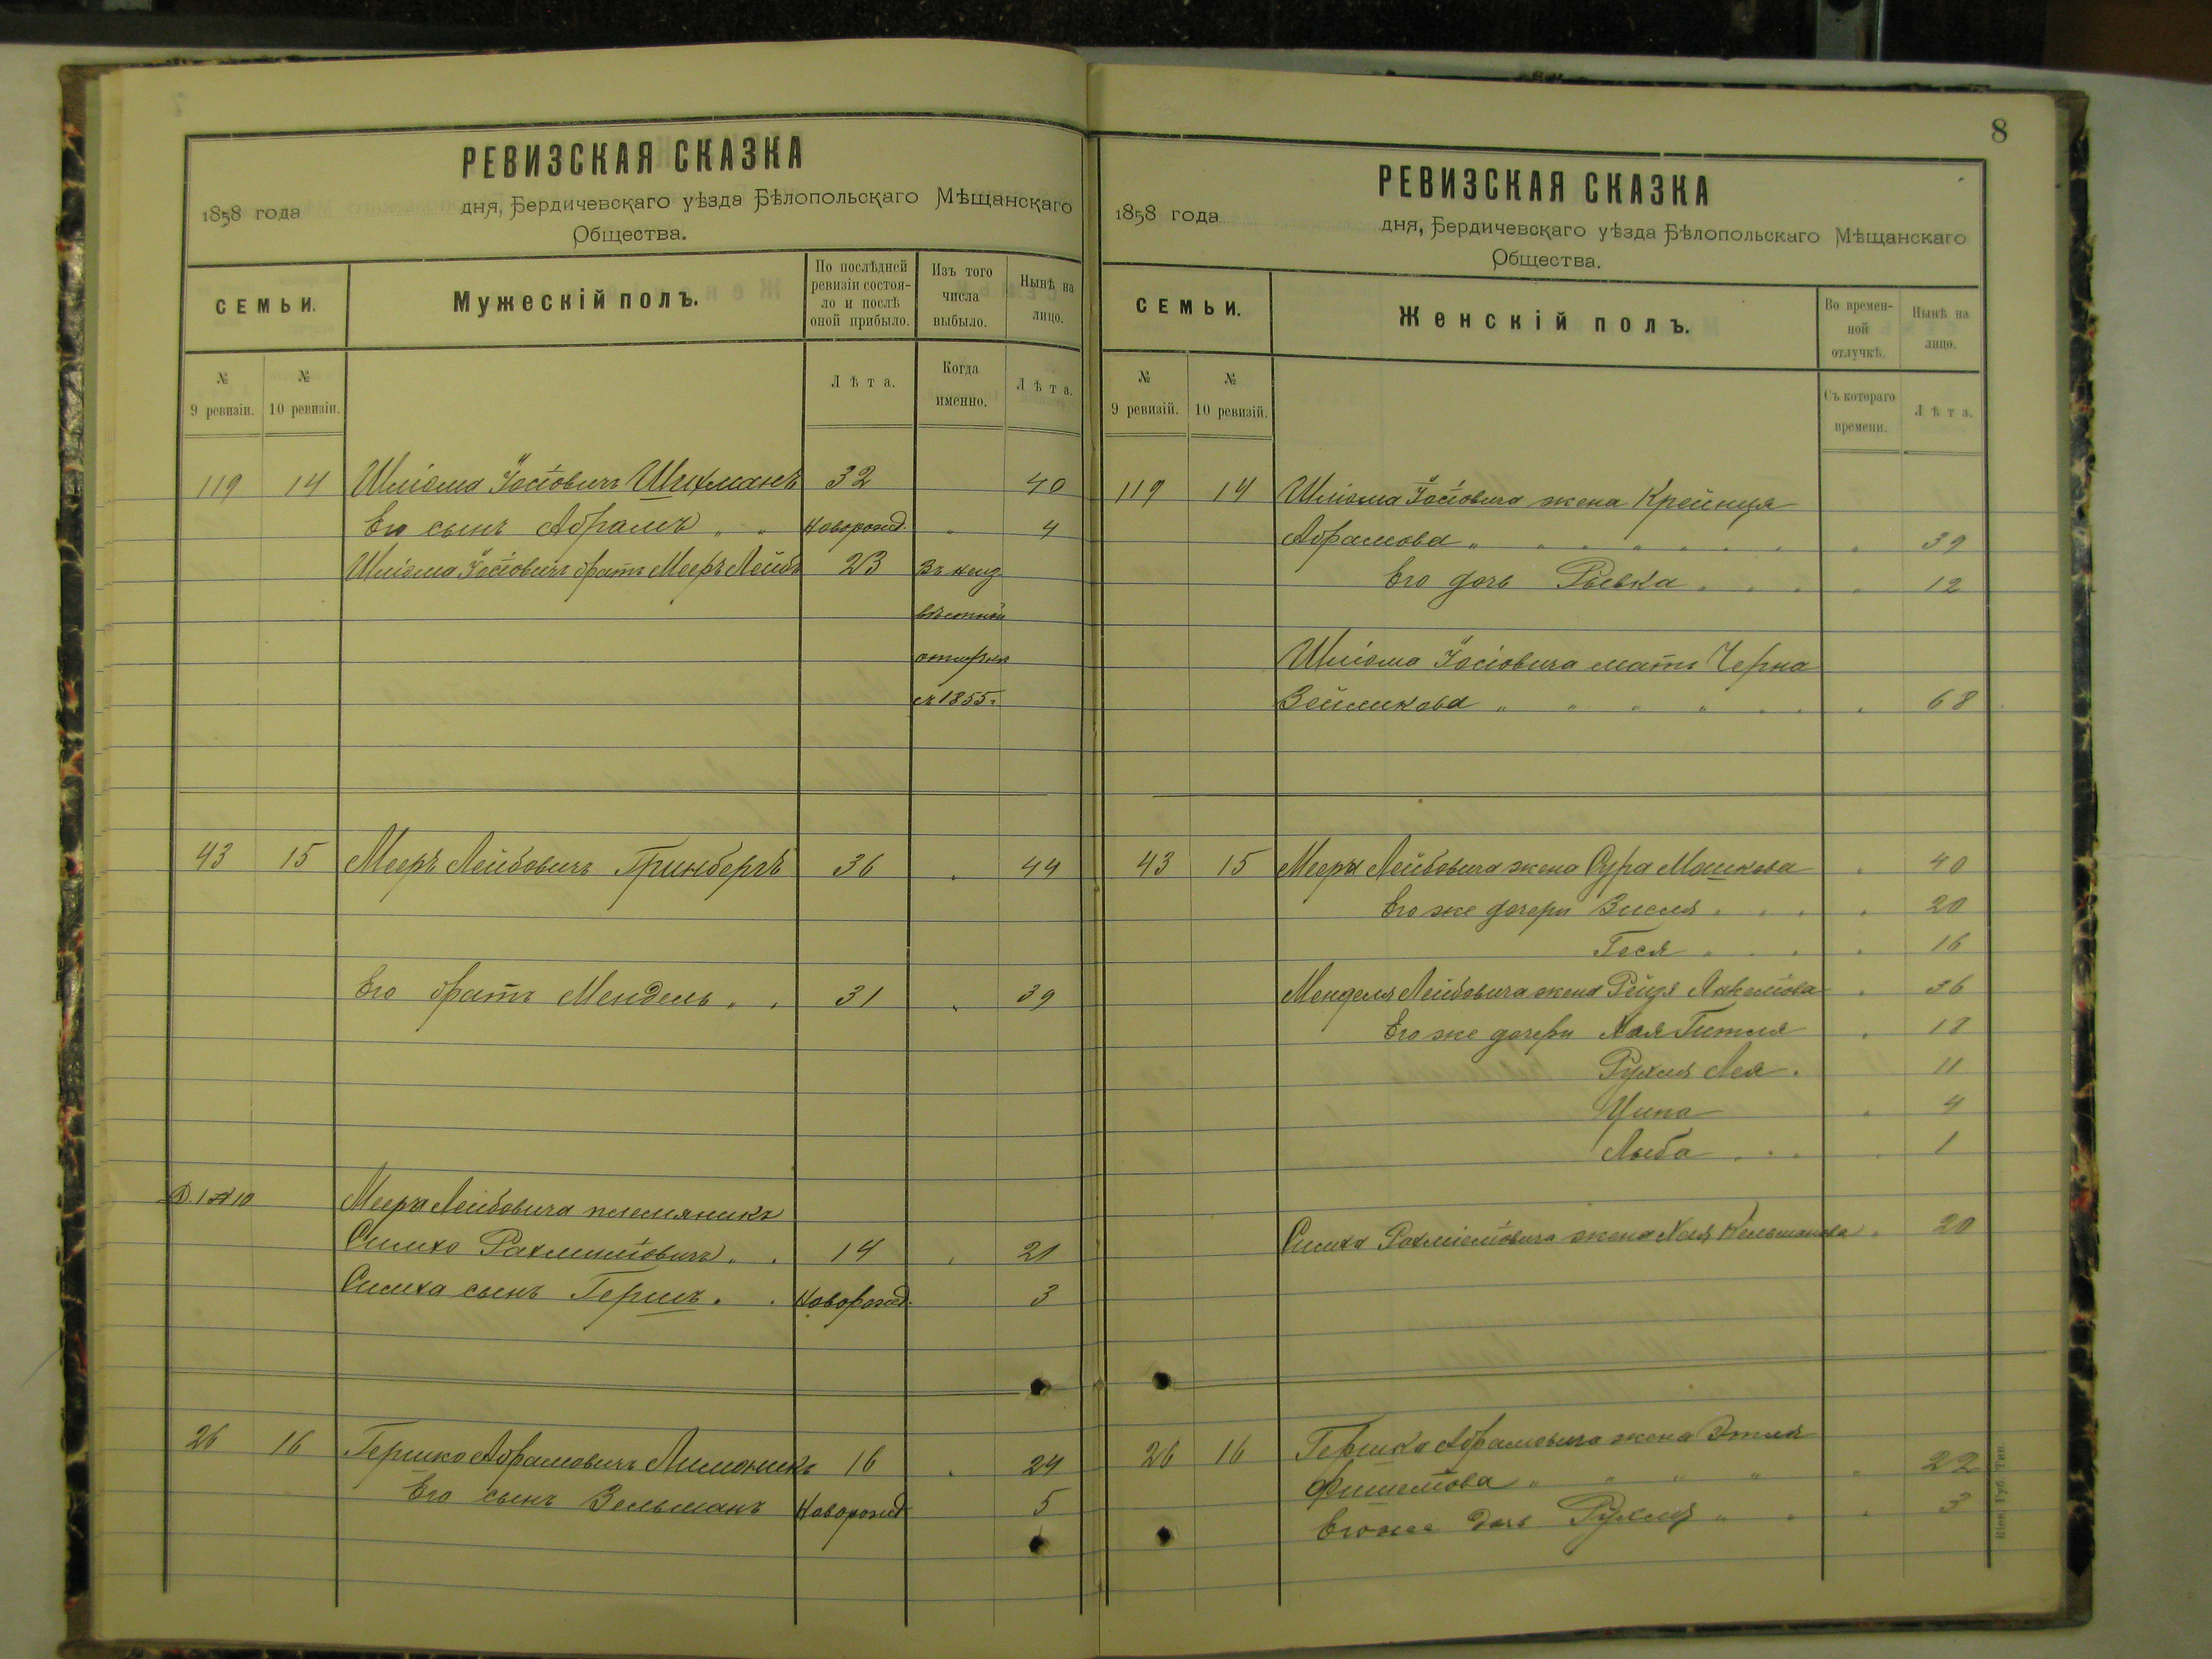 РЕВИЗСКАЯ СКАЗКА
1858 года дня, Бердичевскаго уѣзда Бѣлопольскаго Мѣщанскаго
Общества.
СЕМЬИ.
Мужескій полъ.
По послѣдней
ревизіи состоя-
ло и послѣ
оной прибыло.
Изъ того
числа
выбыло.
Нынѣ на
лицо.
№
9 ревизіи.
№
10 ревизіи.
Лѣта.
Когда
именно.
Лѣта.
119 14 Шліома Іосіовичъ 32 40
Его сынъ Абрамъ " " Новорожд. " 4
Шліома Іосіовичъ братъ Мееръ Лейбъ 23 Въ неиз-
вѣстной
отлучкѣ
съ 1855 г.
43 15 Мееръ Лейбовичъ Гринбергъ 36 " 44
Его братъ Мендель " " 31 " 39
Д. 1 № 10 Меера Лейбовича племяникъ
Симхо Рахмиліовичъ " " 14 " 21
Симха сынъ Гершъ . . Новорожд. 3
26 16 Гершко Абрамовичъ Лимоникъ 16 " 24
Его сынъ Зельманъ Новорожд 5
8
РЕВИЗСКАЯ СКАЗКА
1858 года дня, Бердичевскаго уѣзда Бѣлопольскаго Мѣщанскаго
Общества.
СЕМЬИ.
Женскій полъ.
Во времен-
ной
отлучкѣ.
Нынѣ на
лицо.
№
9 ревизій.
№
10 ревизій.
Съ котораго
времени.
Лѣта.
119 14 Шліома Іосіовича жена Крейнця
Абрамова " " " " " " " 39
Его дочь Рывка " " " " 12
Шліома Іосіовича мать Черна
Зейликова " " " " " " " 68
43 15 Меера Лейбовича жена Сура Машкова " 40
Его же дочери Зисля . . . " 20
Геся " . . " 16
Менделя Лейбовича жена Рейзя Анкеліова " 36
Его же дочери Хая Гитля " 18
Рухля Лея . 11
Ципа " 4
Лыба . . . 1
Симха Рахміеліовича жена Хая Зельманова " 20
26 16 Гершка Абрамовича жена Этля
Фишеліова " " " " " 22
Его же дочь Рухля " " " 3
Кіев. Губ. Тип.